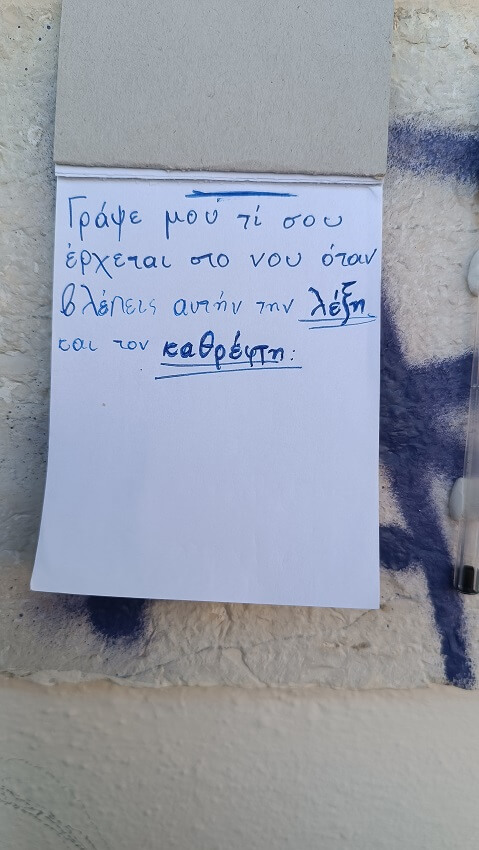 Γράψε μού τί σου
έρχεται στο νου όταν
βλέπεις αυτήν την λέξη
και τον καθρέφτη: